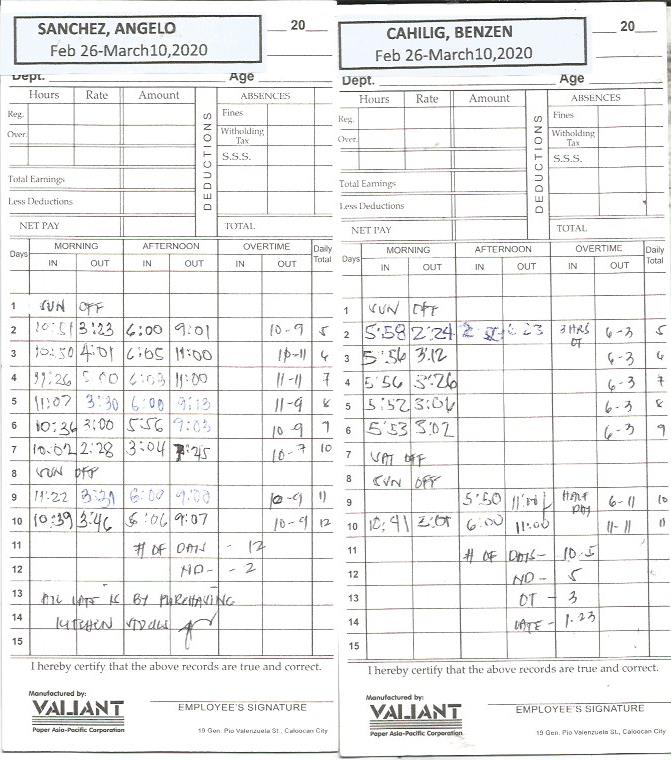 SANCHEZ, ANGELO
Feb 26-March10,2020
20
Dept. Age
Hours Rate Amount
DEDUCTIONS
ABSENCES
Reg.
Fines
Over.
Withholding Tax
S.S.S.
Total Earnings
Less Deductions
NET PAY
TOTAL
Days MORNING AFTERNOON OVERTIME Daily Total
IN OUT IN OUT IN OUT
1 SUN OFF
2 10:51 3:23 6:00 9:01 10-9 5
3 10:50 4:01 6:05 11:00 10-11 6
4 11:26 5:00 6:03 11:00 11-11 7
5 11:07 3:30 6:00 9:13 11-9 8
6 10:36 3:00 5:56 9:03 10-9 9
7 10:02 2:28 3:04 7:45 10-7 10
8 SUN OFF
9 11:22 6:00 9:00 10-9 11
10 10:39 3:46 6:06 9:07 10-9 12
11 # OF DAYS - 12
12 ND - 2
13 ALL LATE IS BY PURCHASING
14 KITCHEN STOCKS
15
I hereby certify that the above records are true and correct.
Manufactured by:
VALIANT
Paper Asia-Pacific Corporation
EMPLOYEE'S SIGNATURE
19 Gen. Pio Valenzuela St., Caloocan City
CAHILIG, BENZEN
Feb 26-March10,2020
20
Dept. Age
Hours Rate Amount
DEDUCTIONS
ABSENCES
Reg.
Fines
Over.
Withholding Tax
S.S.S.
Total Earnings
Less Deductions
NET PAY
TOTAL
Days MORNING AFTERNOON OVERTIME Daily Total
IN OUT IN OUT IN OUT
1 SUN OFF
2 5:58 2:24 3 HRS OT 6-3 5
3 5:56 3:12 6-3 6
4 5:56 3:26 6-3 7
5 5:52 3:06 6-3 8
6 5:53 3:02 6-3 9
7 SAT OFF
8 SUN OFF
9 5:50 11:00 HALF DAY 6-11 10
10 10:41 3:01 6:00 11:00 11-11 11
11 # OF DAYS - 10.5
12 ND - 5
13 OT - 3
14 LATE - 1.23
15
I hereby certify that the above records are true and correct.
Manufactured by:
VALIANT
Paper Asia-Pacific Corporation
EMPLOYEE'S SIGNATURE
19 Gen. Pio Valenzuela St., Caloocan City